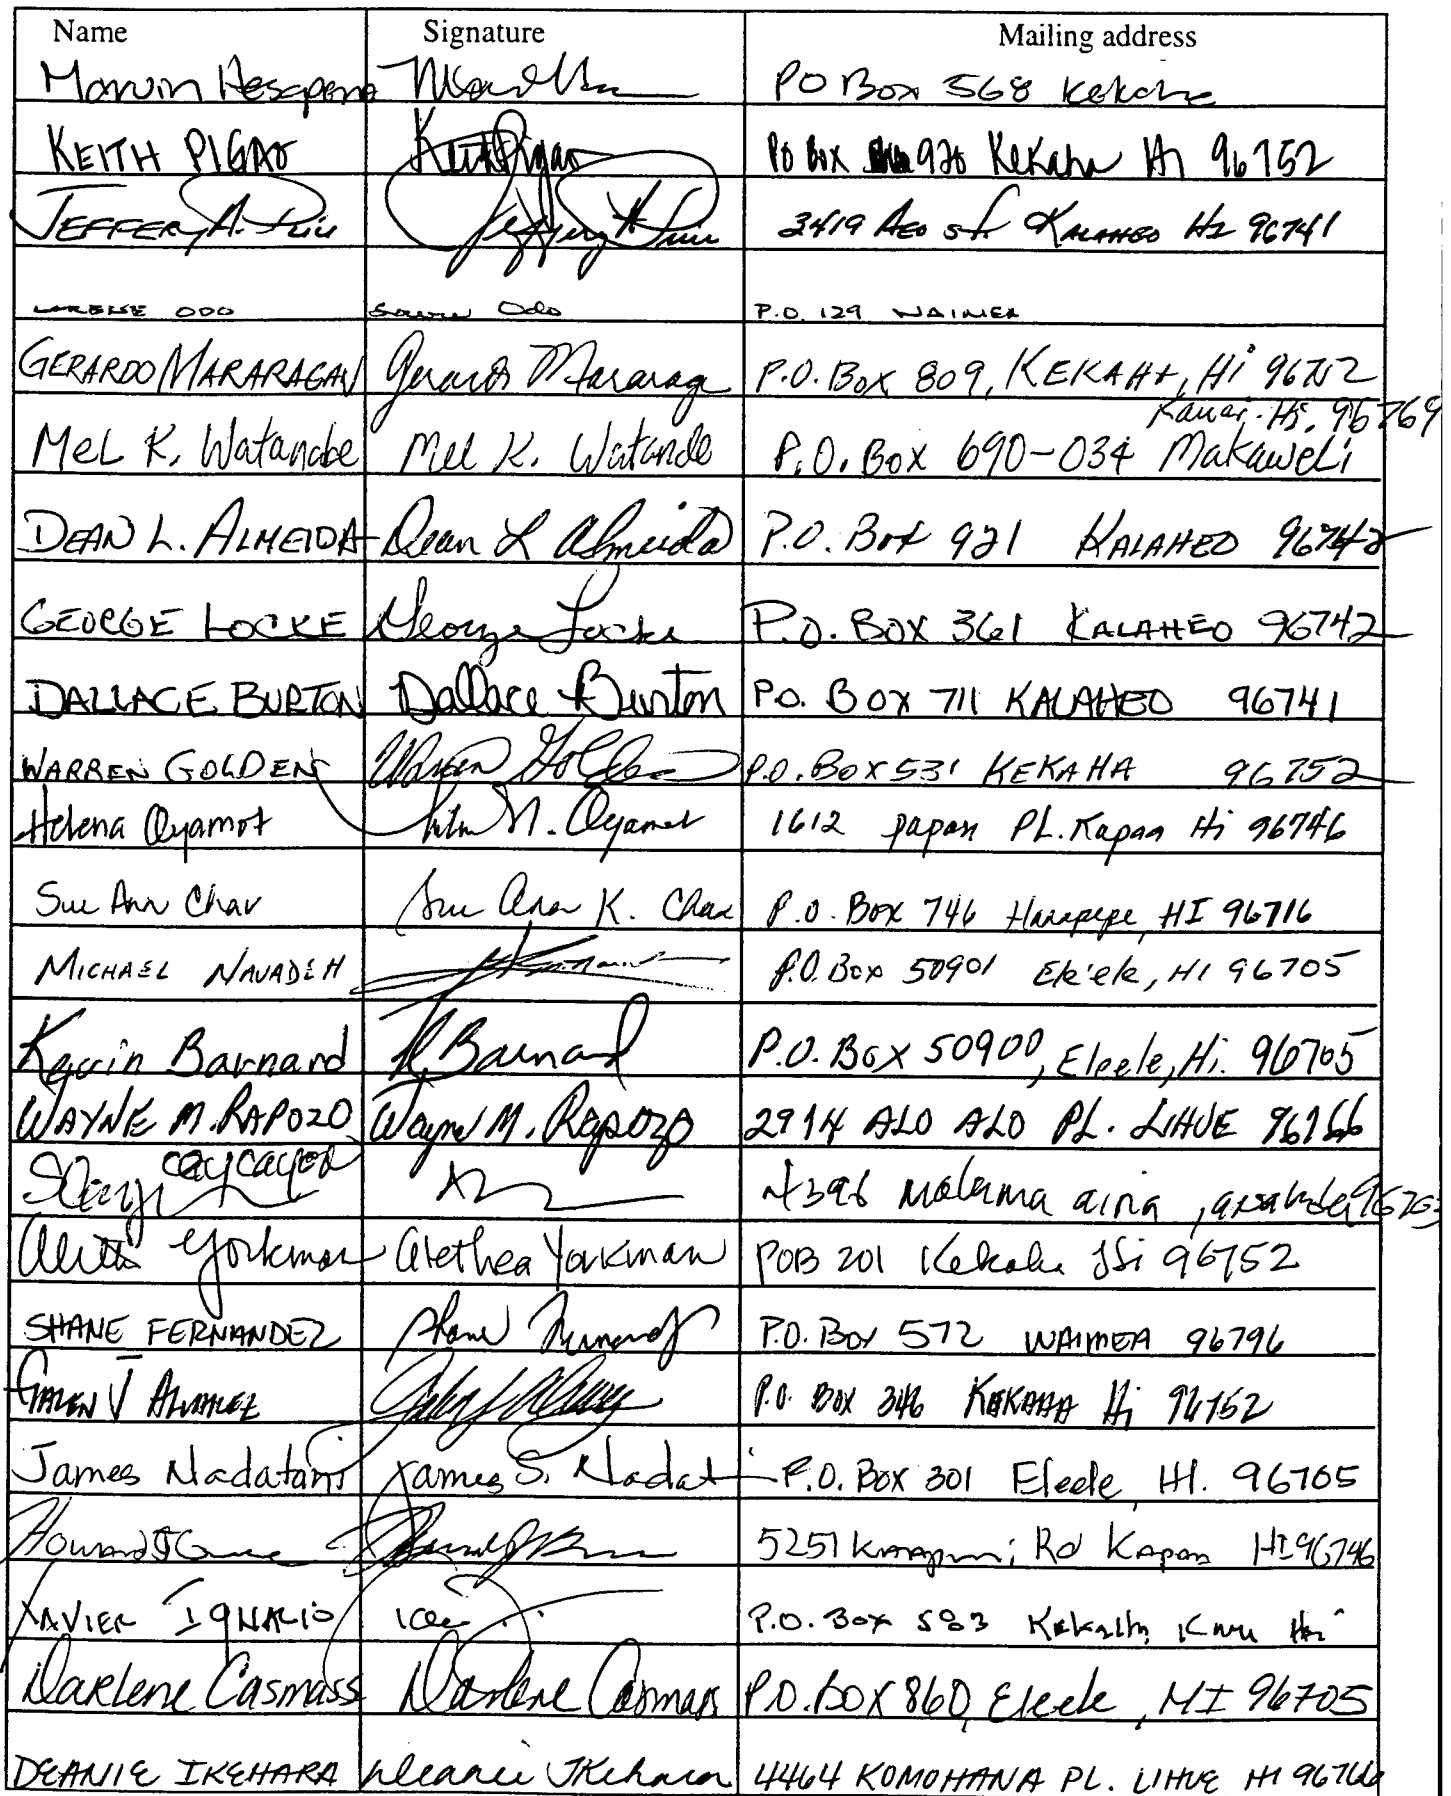 Name Signature Mailing address
Marvin Hesapene PO Box 568 Kekaha
KEITH PIGAO Keith Pigao Po Box 920 Kekaha Hi 96752
JEFFERY A. Jeffery 3419 St KALAHEO HI 96741
ODO Odo P.O. 129 WAIMEA
GERARDO MARARAGAN Gerardo Mararag P.O. Box 809, KEKAHA, Hi 96752
Kauai. Hi. 96769
Mel K. Watanabe Mel K. Watanabe P.O. Box 690-034 Makaweli
DEAN L. ALMEIDA Dean L Almeida P.O. Box 921 KALAHEO 96742
GEORGE LOCKE George Locke P.O. BOX 361 KALAHEO 96742
DALLACE BURTON Dallace Burton P.O. BOX 711 KALAHEO 96741
WARREN GOLDEN Warren Golden P.O. BOX 531 KEKAHA 96752
Helena Oyamot N. Oyamot 1612 papau PL. Kapaa Hi 96746
Sue Ann Sue Ann K. P.O. Box 746 Hanapepe, HI 96716
MICHAEL P.O. Box 50901 Ele'ele, HI 96705
Kevin Barnard K Barnard P.O. Box 50900, Eleele, Hi. 96705
WAYNE M. RAPOZO Wayne M. Rapozo 2914 ALO ALO PL. LIHUE 96766
caycayon 4396 malama aina, 96703
Yorkman Alethea Yorkman POB 201 Kekaha Hi 96752
SHANE FERNANDEZ Shane Fernandez P.O. Box 572 WAIMEA 96796
GALEN J ALVAREZ P.O. Box 346 KEKAHA Hi 96752
James Nadatani James S. Nadat P.O. Box 301 Eleele HI. 96705
Howard 5251 Rd Kapaa HI 96746
XAVIER IGNACIO P.O. Box 583 Kekaha
Darlene Casmass Darlene Casmass P.O. BOX 860, Eleele, HI 96705
DEANIE IKEHARA Deanie Ikehara 4464 KOMOHANA PL. LIHUE HI 96766